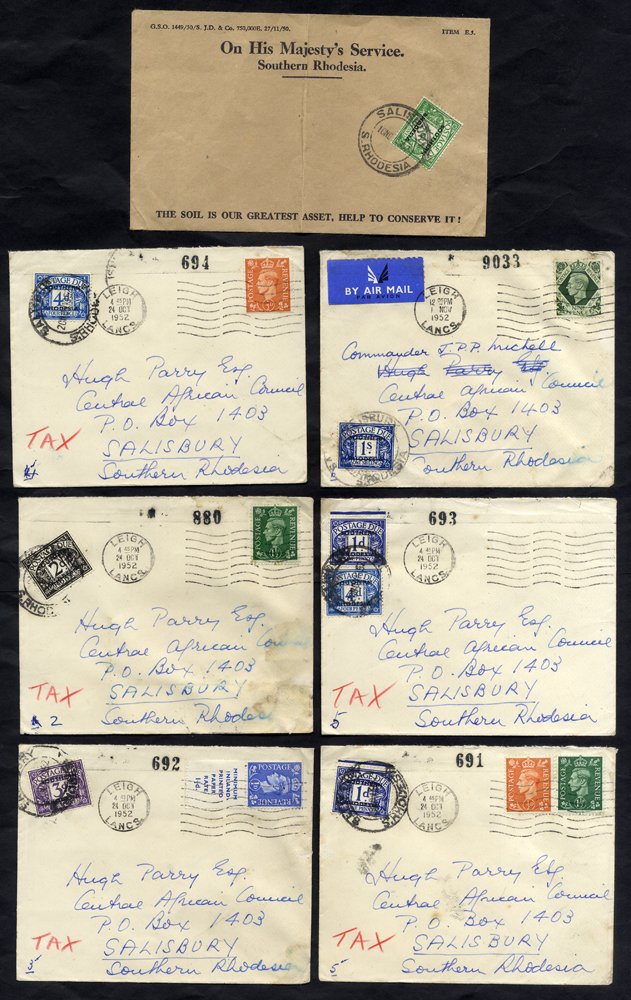 G.S.O. 1449/50/S. J.D. & Co. 750,000E. 27/11/50. ITEM E.5.
On His Majesty's Service.
Southern Rhodesia.
SALIS
S. RHODESIA
POSTAGE
THE SOIL IS OUR GREATEST ASSET, HELP TO CONSERVE IT!
694
POSTAGE DUE
4d
LEIGH
4 45PM
24 OCT
1952
LANCS.
POSTAGE REVENUE
Hugh Parry Esq.
Central African Council
P.O. Box 1403
SALISBURY
Southern Rhodesia
TAX
9033
BY AIR MAIL
PAR AVION
LEIGH
1 NOV
1952
LANCS.
Commander J.P.P. Michell
Hugh Parry
Central African Council
P.O. Box 1403
SALISBURY
Southern Rhodesia
POSTAGE DUE
1S
880
POSTAGE DUE
2d
S. RHOD
LEIGH
4 45PM
24 OCT
1952
LANCS.
POSTAGE REVENUE
Hugh Parry Esq.
Central African Coun
P.O. Box 1403
SALISBURY
Southern Rhodes
TAX
2
693
POSTAGE DUE
1d
4d
LEIGH
4 45PM
24 OCT
1952
LANCS.
Hugh Parry Esq.
Central African Council
P.O. Box 1403
SALISBURY
Southern Rhodesia
TAX
5
692
POSTAGE DUE
3d
LEIGH
4 45PM
24 OCT
1952
LANCS.
MINIMUM
INLAND
PRINTED
PAPER
RATE
1½d
POSTAGE REVENUE
Hugh Parry Esq.
Central African Council
P.O. Box 1403
SALISBURY
Southern Rhodesia
TAX
691
POSTAGE DUE
1d
LEIGH
4 45PM
24 OCT
1952
LANCS.
POSTAGE REVENUE
POSTAGE REVENUE
Hugh Parry Esq.
Central African Council
P.O. Box 1403
SALISBURY
Southern Rhodesia
TAX
5